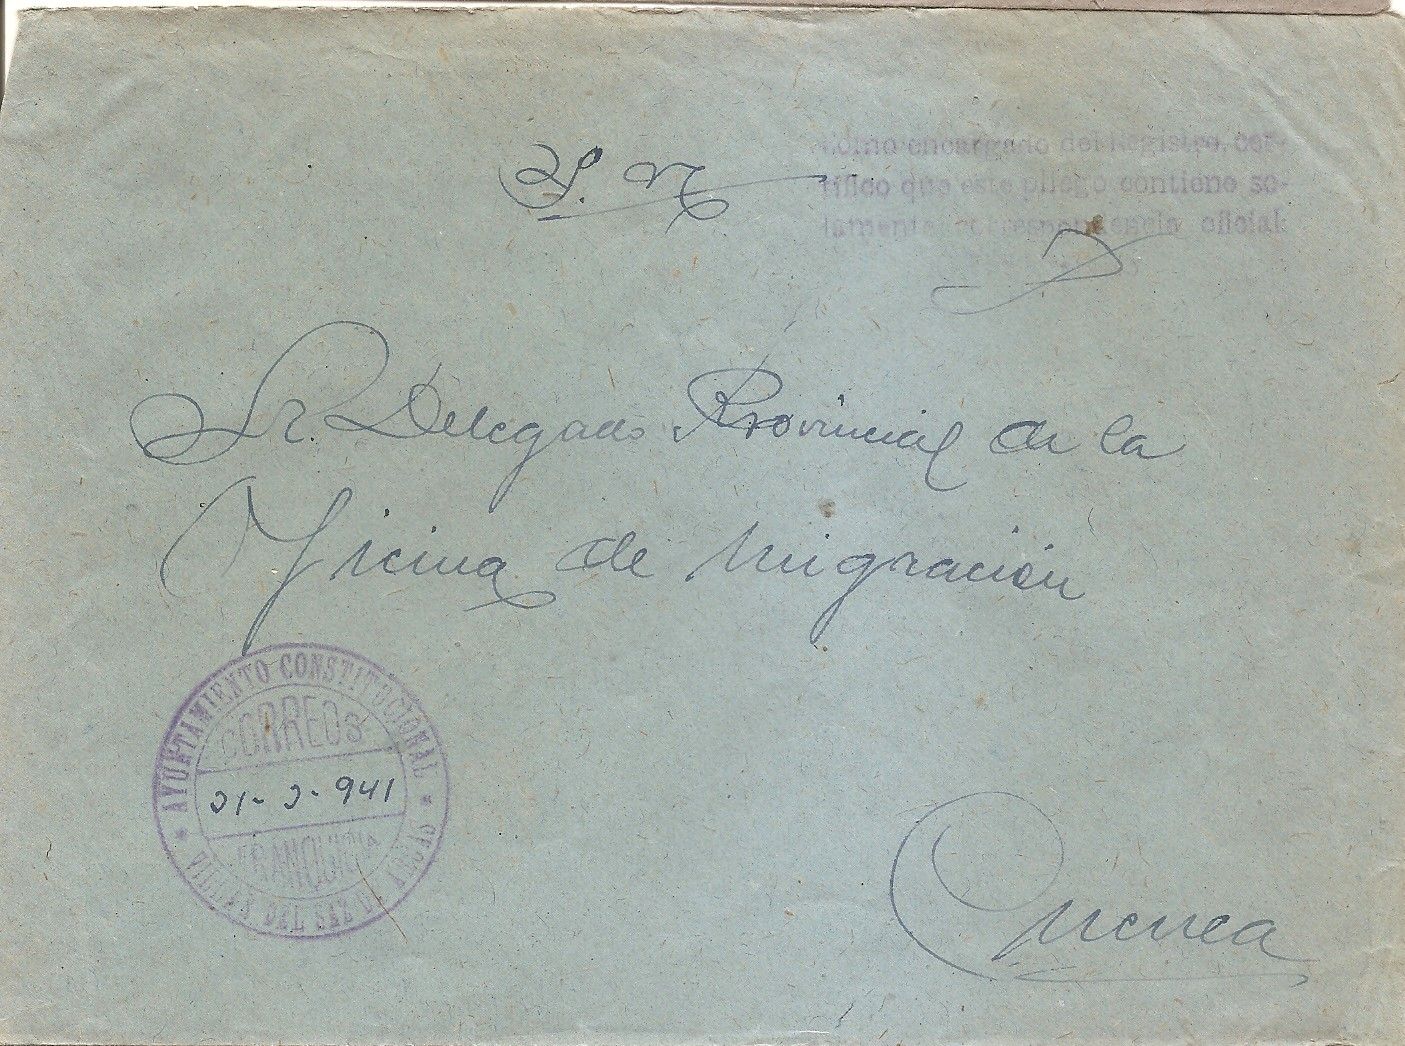 S. N.
Como encargado del Registro, cer-
tifico que este pliego contiene so-
lamente correspondencia oficial
Sr. Delegado Provincial de la
Oficina de Migración
AYUNTAMIENTO CONSTITUCIONAL
CORREOS
21-2-941
FRANQUICIA
VILLAR DEL SAZ DE ARCAS
Cuenca